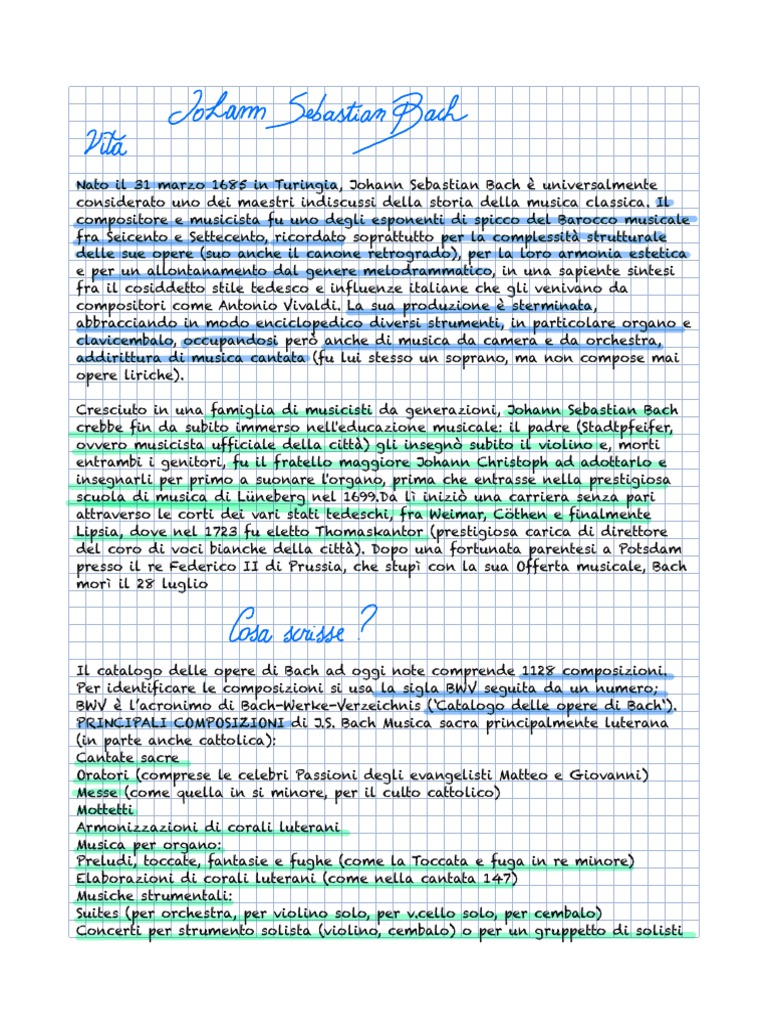 Johann Sebastian Bach
Vitá
Nato il 31 marzo 1685 in Turingia, Johann Sebastian Bach è universalmente
considerato uno dei maestri indiscussi della storia della musica classica. Il
compositore e musicista fu uno degli esponenti di spicco del Barocco musicale
fra Seicento e Settecento, ricordato soprattutto per la complessità strutturale
delle sue opere (suo anche il canone retrogrado), per la loro armonia estetica
e per un allontanamento dal genere melodrammatico, in una sapiente sintesi
fra il cosiddetto stile tedesco e influenze italiane che gli venivano da
compositori come Antonio Vivaldi. La sua produzione è sterminata,
abbracciando in modo enciclopedico diversi strumenti, in particolare organo e
clavicembalo, occupandosi però anche di musica da camera e da orchestra,
addirittura di musica cantata (fu lui stesso un soprano, ma non compose mai
opere liriche).
Cresciuto in una famiglia di musicisti da generazioni, Johann Sebastian Bach
crebbe fin da subito immerso nell'educazione musicale: il padre (Stadtpfeifer,
ovvero musicista ufficiale della città) gli insegnò subito il violino e, morti
entrambi i genitori, fu il fratello maggiore Johann Christoph ad adottarlo e
insegnarli per primo a suonare l'organo, prima che entrasse nella prestigiosa
scuola di musica di Lüneberg nel 1699.Da lì iniziò una carriera senza pari
attraverso le corti dei vari stati tedeschi, fra Weimar, Cöthen e finalmente
Lipsia, dove nel 1723 fu eletto Thomaskantor (prestigiosa carica di direttore
del coro di voci bianche della città). Dopo una fortunata parentesi a Potsdam
presso il re Federico II di Prussia, che stupì con la sua Offerta musicale, Bach
morì il 28 luglio
Cosa scrisse?
Il catalogo delle opere di Bach ad oggi note comprende 1128 composizioni.
Per identificare le composizioni si usa la sigla BWV seguita da un numero;
BWV è l'acronimo di Bach-Werke-Verzeichnis ('Catalogo delle opere di Bach').
PRINCIPALI COMPOSIZIONI di J.S. Bach Musica sacra principalmente luterana
(in parte anche cattolica):
Cantate sacre
Oratori (comprese le celebri Passioni degli evangelisti Matteo e Giovanni)
Messe (come quella in si minore, per il culto cattolico)
Mottetti
Armonizzazioni di corali luterani
Musica per organo:
Preludi, toccate, fantasie e fughe (come la Toccata e fuga in re minore)
Elaborazioni di corali luterani (come nella cantata 147)
Musiche strumentali:
Suites (per orchestra, per violino solo, per v.cello solo, per cembalo)
Concerti per strumento solista (violino, cembalo) o per un gruppetto di solisti